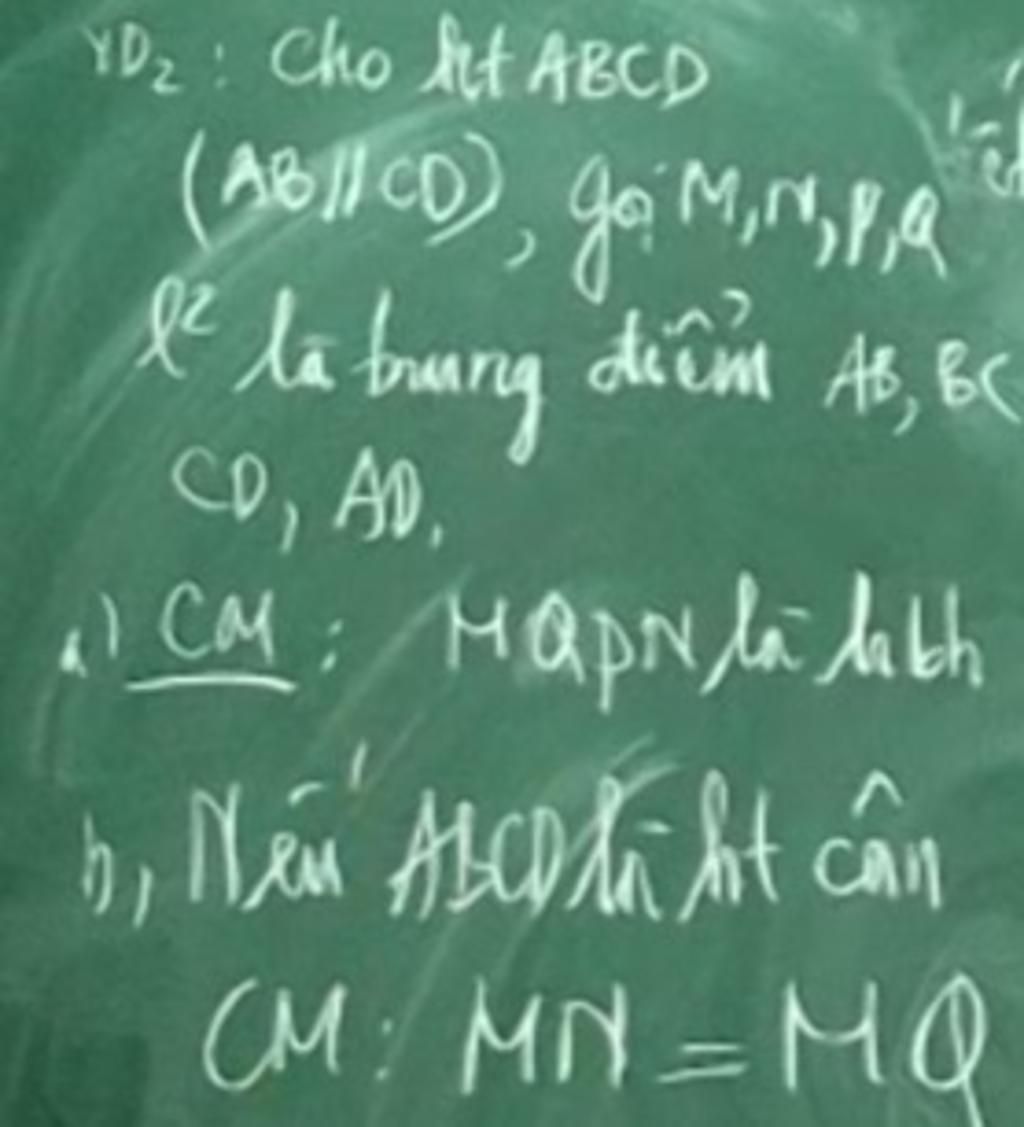 VD2: Cho ht ABCD
(AB // CD), gọi M, N, P, Q
l2 là trung điểm AB, BC
CD, AD.
a) CM: MQPN là hbh
b, Nếu ABCD là ht cân
CM: MN = MQ